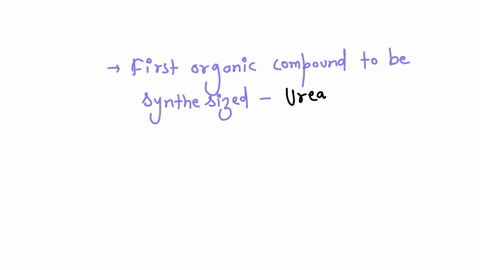 → First organic compound to be
synthesized - Urea